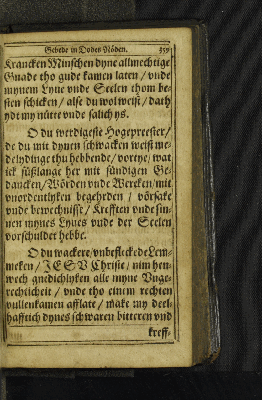 Gebede in Dodes Nöden. 359
Krancken Minschen dyne allmechtige
Gnade tho gude kamen laten / vnde
mynem Lyue vnde Seelen thom be-
sten schicken / alse du wol weist / dath
ydt my nütte vnde salich ys.
O du werdigeste Hogepreester /
de du mit dynen schwacken weist me-
delydinge thu hebbende / vortye / wat
ick süßlange her mit sündigen Ge-
dancken / Wörden vnde Wercken / mit
vnordentlyken begehrden / vörsate
vnde bewechnisse / Krefften vnde sin-
nen mynes Lyues vnde der Seelen
vorschuldet hebbe.
O du wackere / vnbefleckede Lem-
meken / JESV Christe / nim hen
wech gnedichlyken alle myne Vnge-
rechticheit / vnde tho einem rechten
vullenkamen afflate / make my deel-
hafftich dynes schwaren bitteren vnd
kreff-